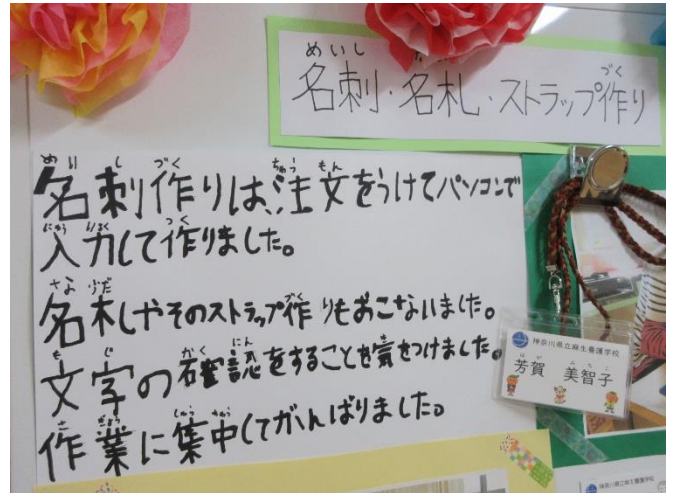 名刺・名札・ストラップ作り
名刺作りは、注文をうけてパソコンで
入力して作りました。
名札やそのストラップ作りもおこないました。
文字の確認をすることを気をつけました。
作業に集中してがんばりました。
神奈川県立麻生養護学校
はが みちこ
芳賀 美智子
神奈川県立麻生養護学校